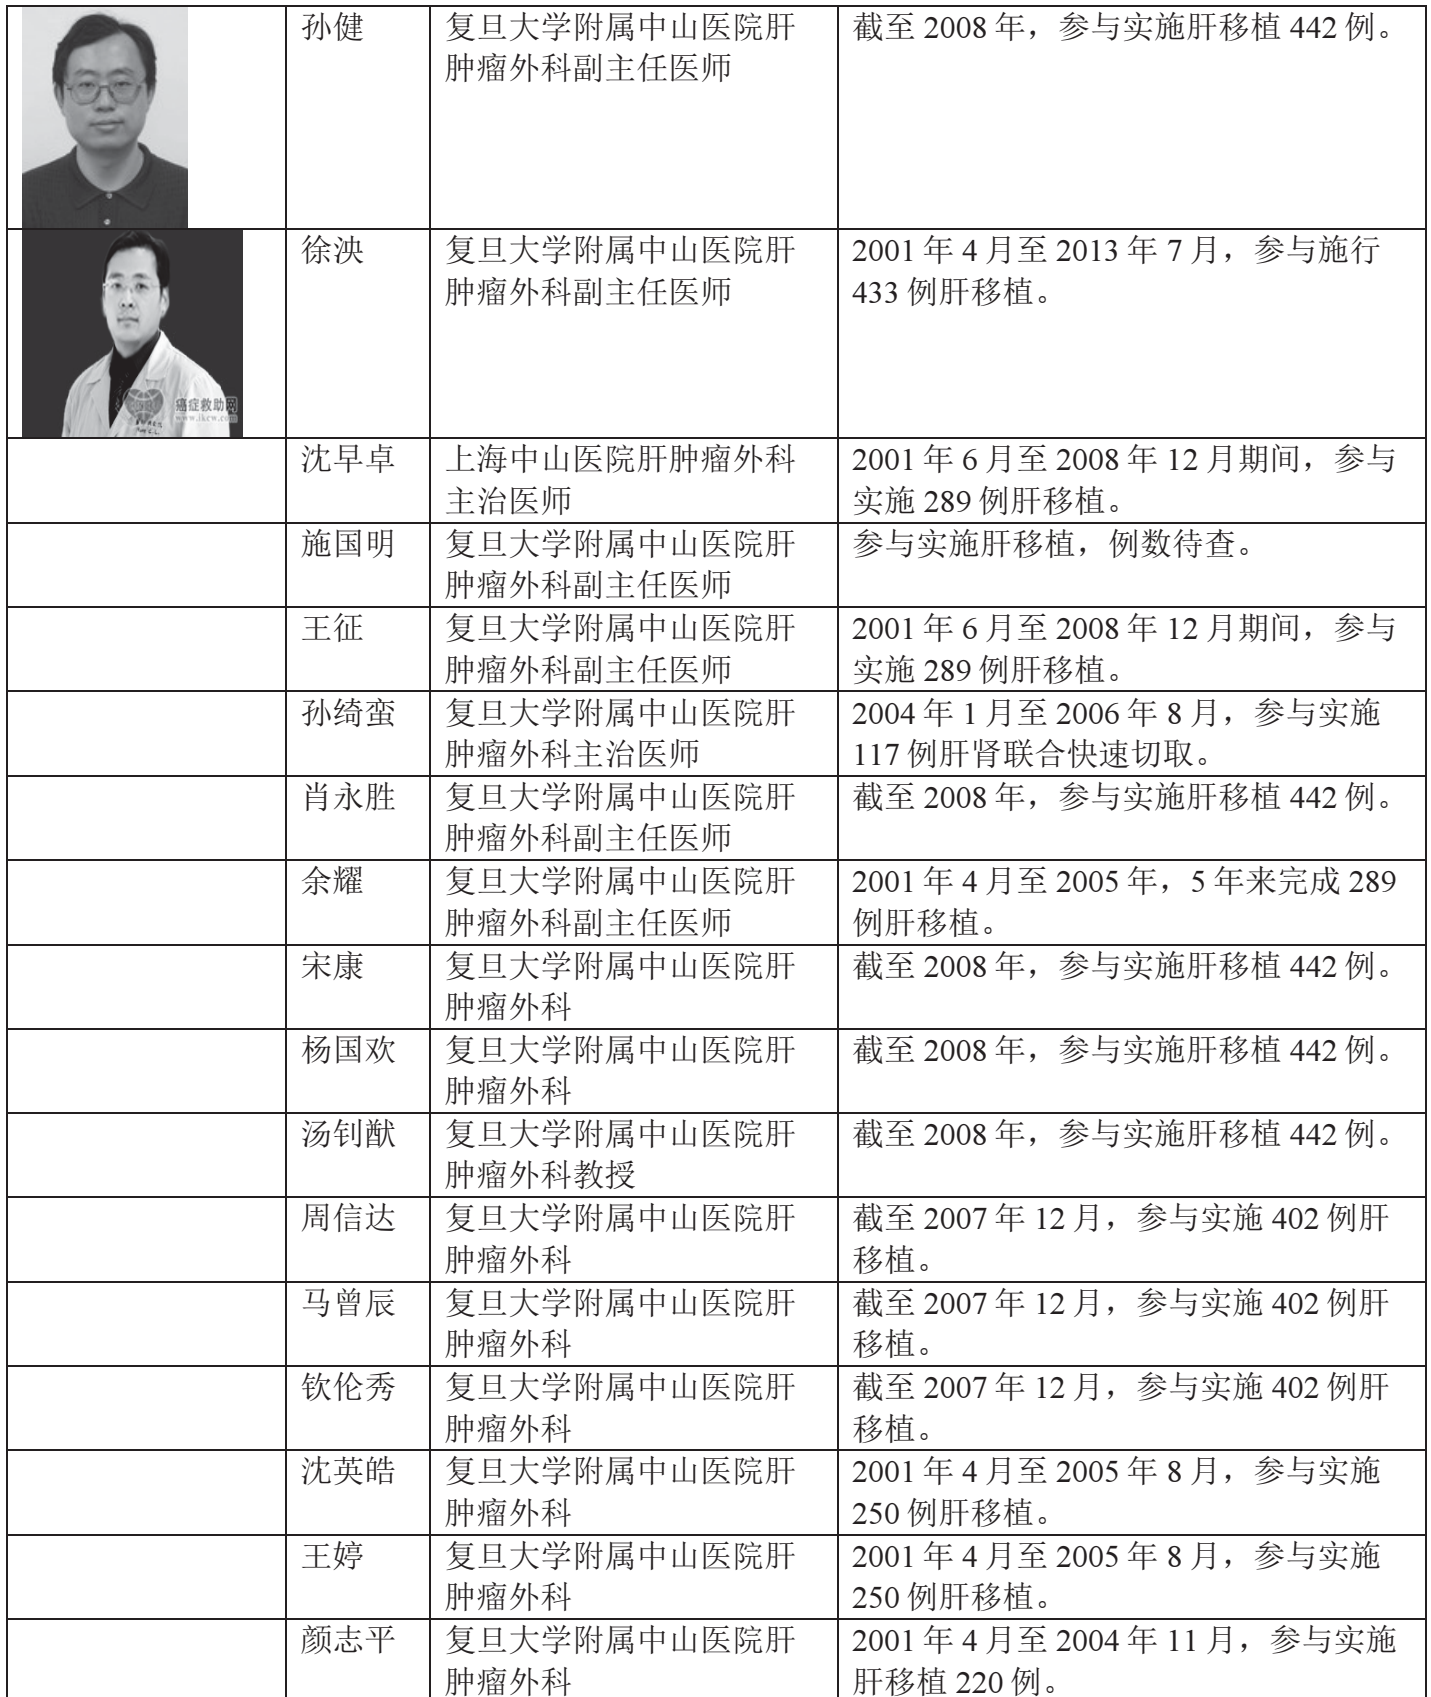 孙健
复旦大学附属中山医院肝
肿瘤外科副主任医师
截至 2008 年，参与实施肝移植 442 例。
徐泱
复旦大学附属中山医院肝
肿瘤外科副主任医师
2001 年 4 月至 2013 年 7 月，参与施行
433 例肝移植。
癌症救助网
www.ikcw.com
沈早卓
上海中山医院肝肿瘤外科
主治医师
2001 年 6 月至 2008 年 12 月期间，参与
实施 289 例肝移植。
施国明
复旦大学附属中山医院肝
肿瘤外科副主任医师
参与实施肝移植，例数待查。
王征
复旦大学附属中山医院肝
肿瘤外科副主任医师
2001 年 6 月至 2008 年 12 月期间，参与
实施 289 例肝移植。
孙绮蛮
复旦大学附属中山医院肝
肿瘤外科主治医师
2004 年 1 月至 2006 年 8 月，参与实施
117 例肝肾联合快速切取。
肖永胜
复旦大学附属中山医院肝
肿瘤外科副主任医师
截至 2008 年，参与实施肝移植 442 例。
余耀
复旦大学附属中山医院肝
肿瘤外科副主任医师
2001 年 4 月至 2005 年，5 年来完成 289
例肝移植。
宋康
复旦大学附属中山医院肝
肿瘤外科
截至 2008 年，参与实施肝移植 442 例。
杨国欢
复旦大学附属中山医院肝
肿瘤外科
截至 2008 年，参与实施肝移植 442 例。
汤钊猷
复旦大学附属中山医院肝
肿瘤外科教授
截至 2008 年，参与实施肝移植 442 例。
周信达
复旦大学附属中山医院肝
肿瘤外科
截至 2007 年 12 月，参与实施 402 例肝
移植。
马曾辰
复旦大学附属中山医院肝
肿瘤外科
截至 2007 年 12 月，参与实施 402 例肝
移植。
钦伦秀
复旦大学附属中山医院肝
肿瘤外科
截至 2007 年 12 月，参与实施 402 例肝
移植。
沈英皓
复旦大学附属中山医院肝
肿瘤外科
2001 年 4 月至 2005 年 8 月，参与实施
250 例肝移植。
王婷
复旦大学附属中山医院肝
肿瘤外科
2001 年 4 月至 2005 年 8 月，参与实施
250 例肝移植。
颜志平
复旦大学附属中山医院肝
肿瘤外科
2001 年 4 月至 2004 年 11 月，参与实施
肝移植 220 例。